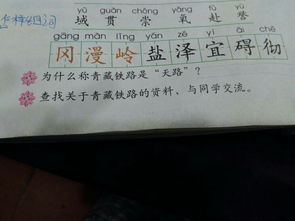 yù guàn chóng yǎng fù yù
域 贯 崇 氧 赴 誉
gāng màn lǐng yán zé yí ài chè
冈 漫 岭 盐 泽 宜 碍 彻
为什么称青藏铁路是“天路”?
查找关于青藏铁路的资料,与同学交流。